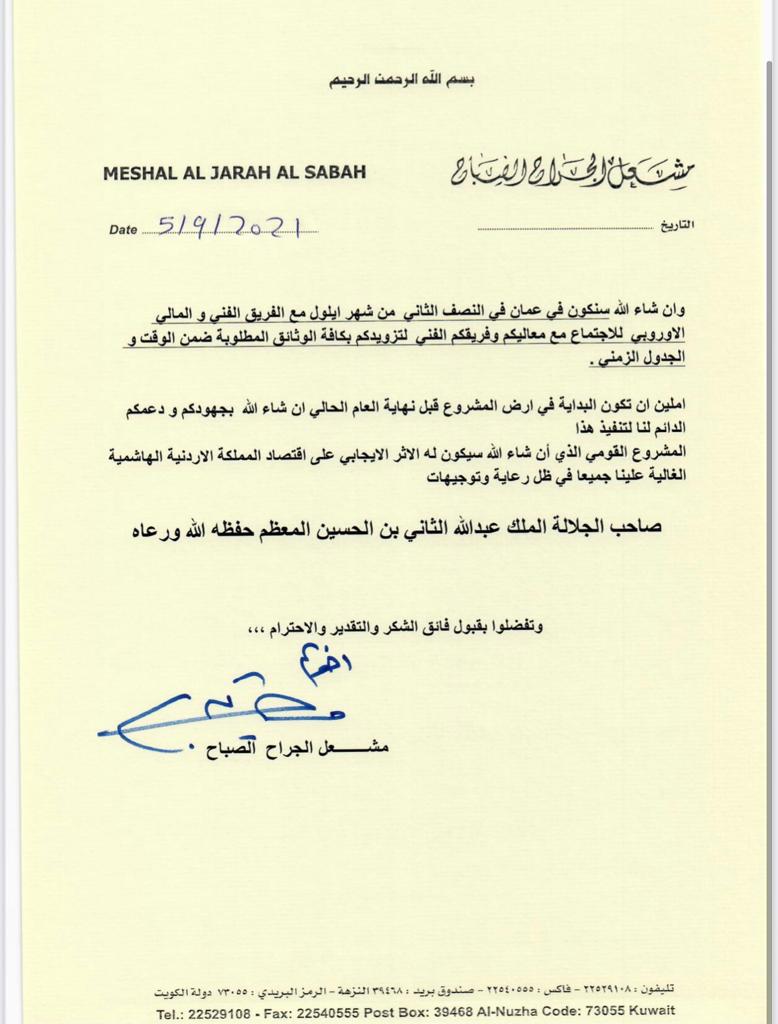 بسم الله الرحمن الرحيم
MESHAL AL JARAH AL SABAH
مشعل الجراح الصباح
Date 5/9/2021
التاريخ
وان شاء الله سنكون في عمان في النصف الثاني من شهر ايلول مع الفريق الفني و المالي
الاوروبي للاجتماع مع معاليكم وفريقكم الفني لتزويدكم بكافة الوثائق المطلوبة ضمن الوقت و
الجدول الزمني .
املين ان تكون البداية في ارض المشروع قبل نهاية العام الحالي ان شاء الله بجهودكم و دعمكم
الدائم لنا لتنفيذ هذا
المشروع القومي الذي أن شاء الله سيكون له الاثر الايجابي على اقتصاد المملكة الاردنية الهاشمية
الغالية علينا جميعا في ظل رعاية وتوجيهات
صاحب الجلالة الملك عبدالله الثاني بن الحسين المعظم حفظه الله ورعاه
وتفضلوا بقبول فائق الشكر والتقدير والاحترام ،،،
اخوكم
مشـــــعل الجراح الصباح
تليفون : ٢٢٥٢٩١٠٨ - فاكس : ٢٢٥٤٠٥٥٥ - صندوق بريد : ٣٩٤٦٨ النزهة - الرمز البريدي : ٧٣٠٥٥ دولة الكويت
Tel.: 22529108 - Fax: 22540555 Post Box: 39468 Al-Nuzha Code: 73055 Kuwait